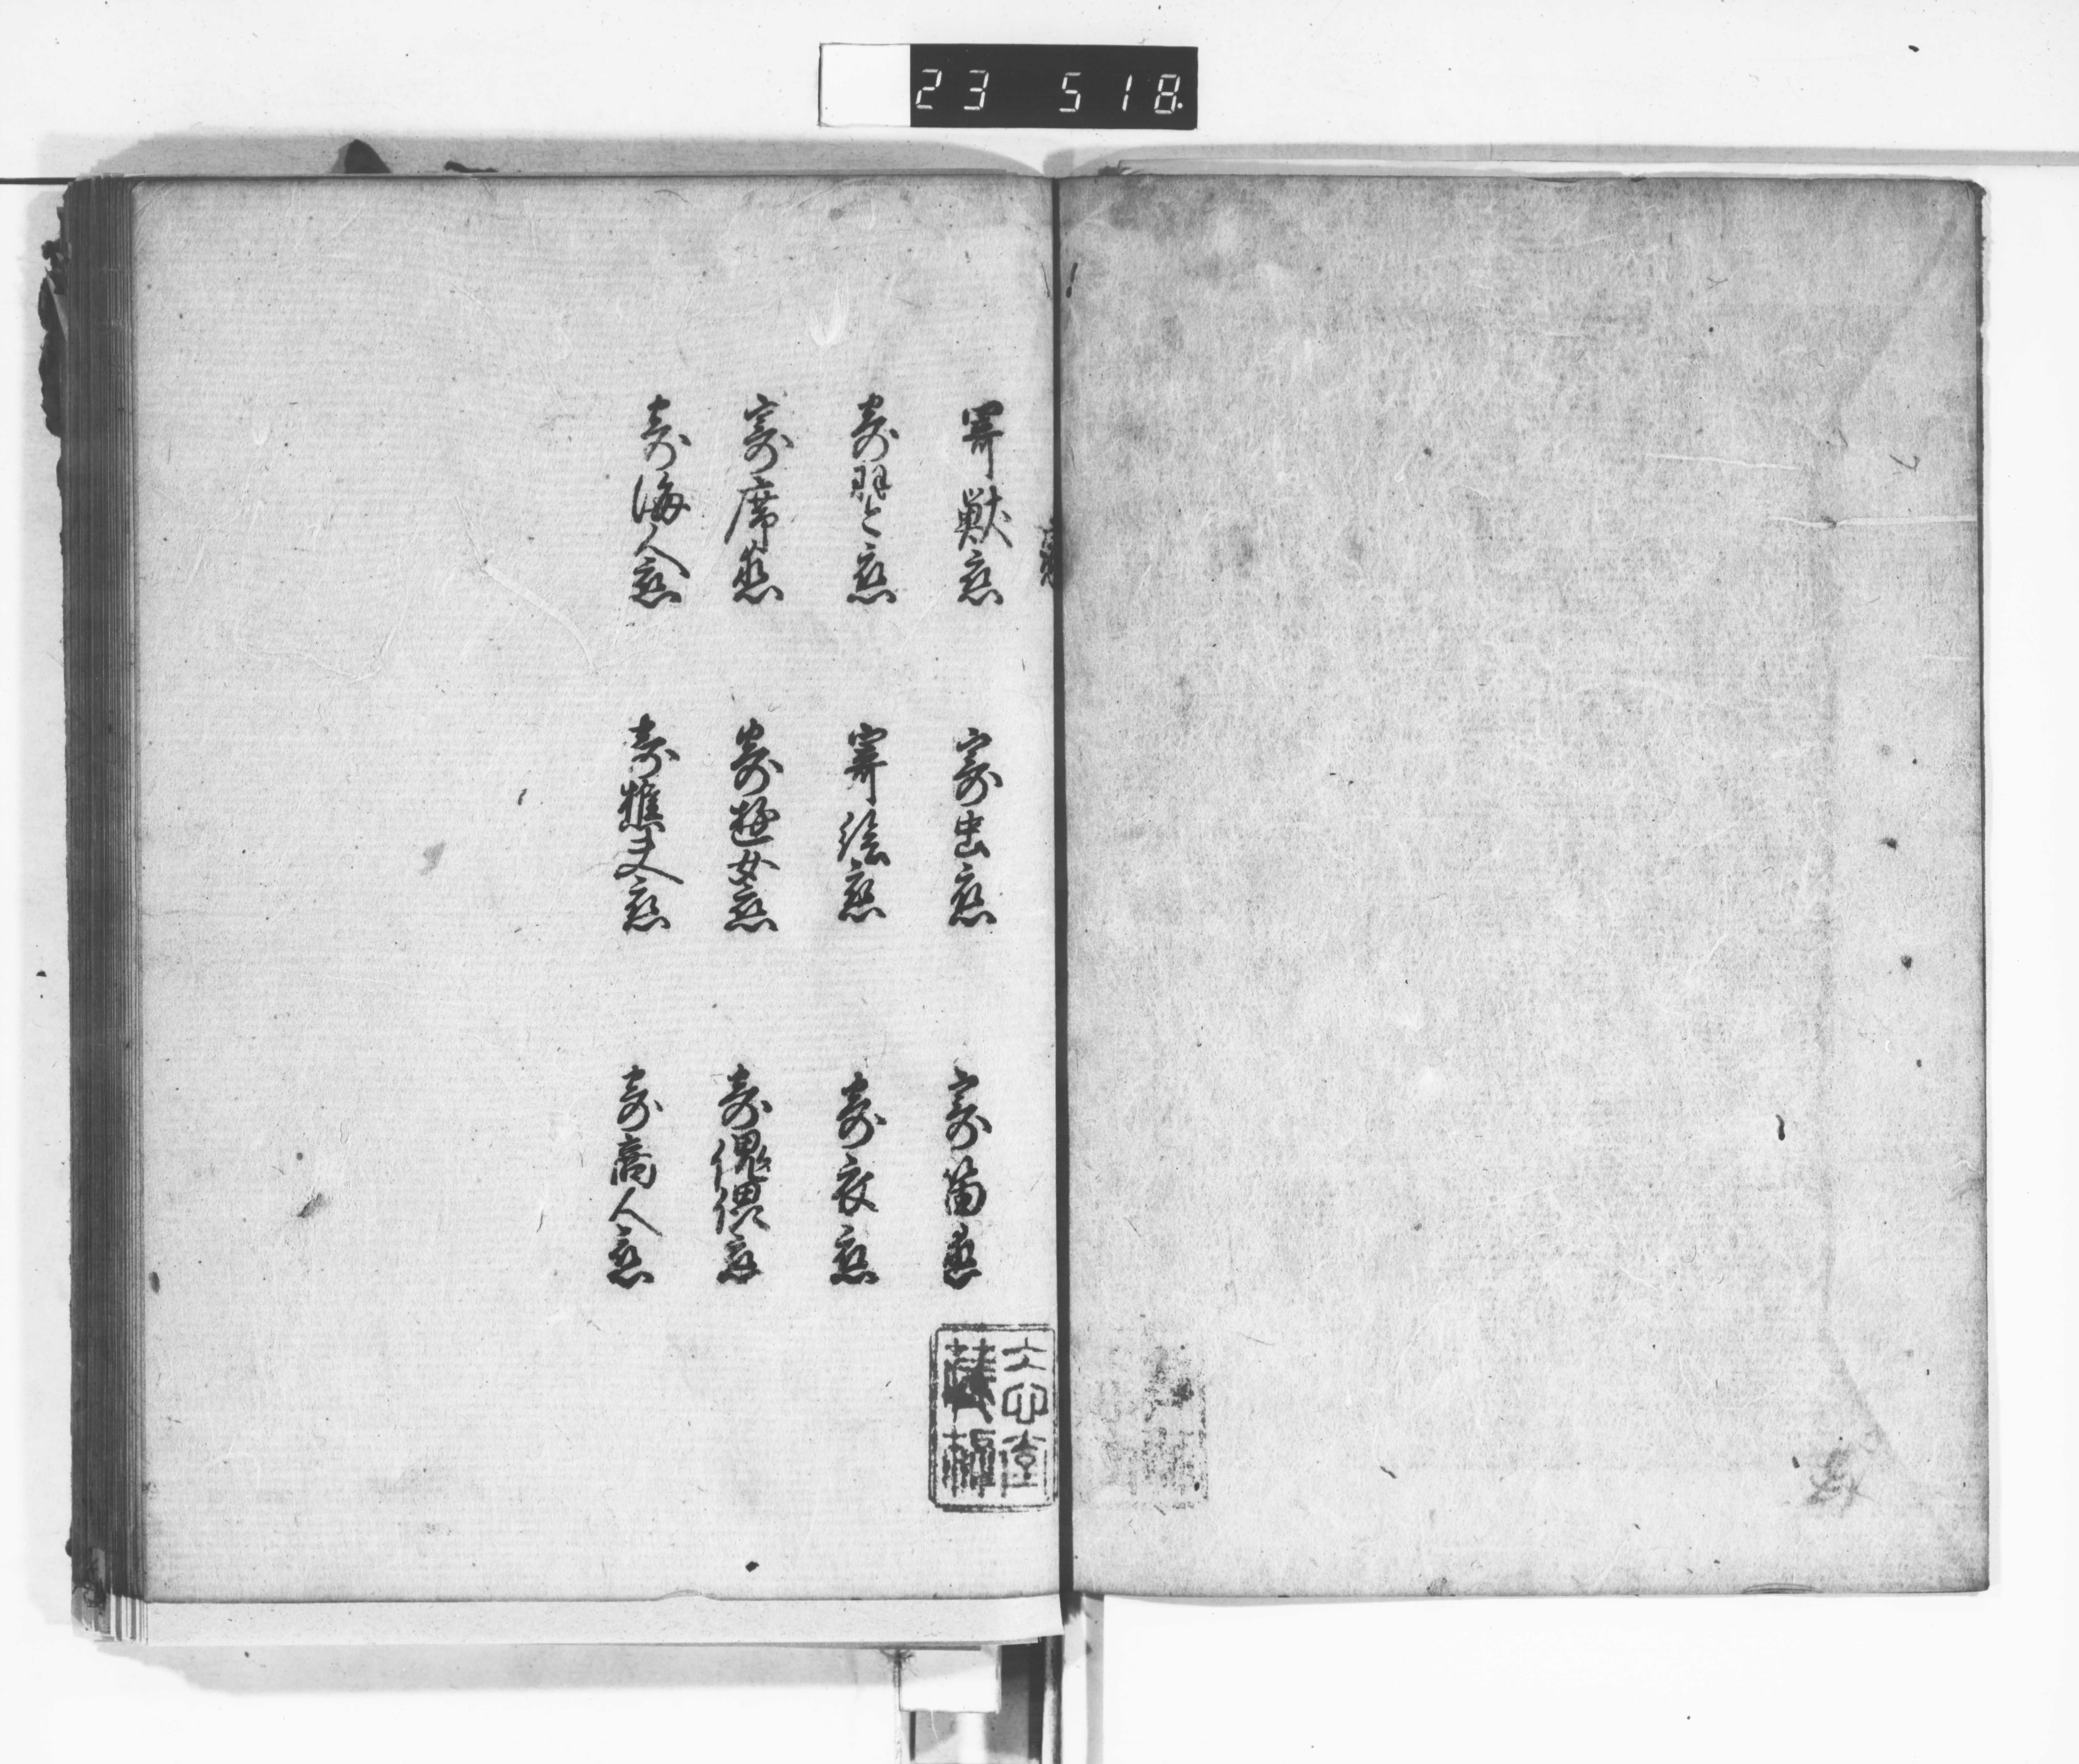 23 518.
寄獣恋 寄虫恋 寄笛恋
寄琴恋 寄絵恋 寄衣恋
寄席恋 寄遊女恋 寄傀儡恋
寄海人恋 寄樵夫恋 寄商人恋